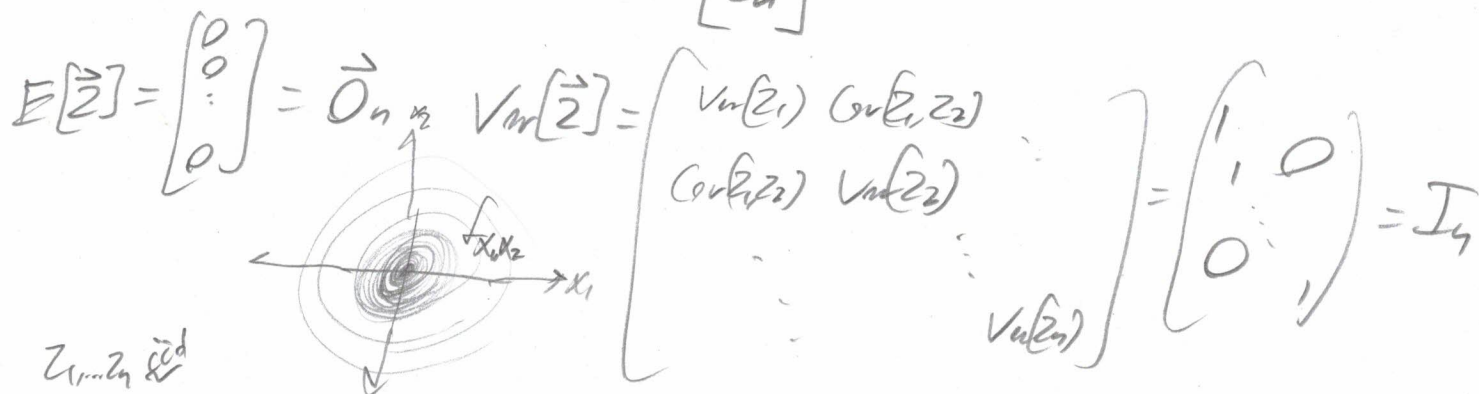 E[\vec{Z}] = \begin{bmatrix} 0 \\ 0 \\ \vdots \\ 0 \end{bmatrix} = \vec{0}_n
Var[\vec{Z}] = \begin{bmatrix} Var[Z_1] & Cov[Z_1, Z_2] & \ddots \\ Cov[Z_1, Z_2] & Var[Z_2] & \\ \vdots & \ddots & Var[Z_n] \end{bmatrix} = \begin{bmatrix} 1 & & 0 \\ & 1 & \\ 0 & \ddots & 1 \end{bmatrix} = I_n
x_2
f_{X_1,X_2}
x_1
Z_1,...Z_n iid